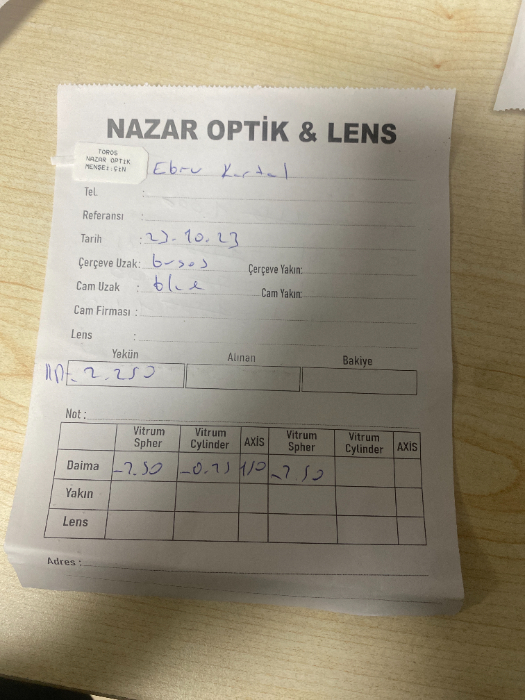 NAZAR OPTİK & LENS
TOROS
NAZAR OPTIK
MENŞEİ:ÇİN
Ebru
Tel. :
Referansı :
Tarih : 23.10.23
Çerçeve Uzak: Çerçeve Yakın:
Cam Uzak : blue Cam Yakın:
Cam Firması :
Lens :
Yekün Alınan Bakiye
2.250
Not :
Vitrum Spher Vitrum Cylinder AXİS Vitrum Spher Vitrum Cylinder AXİS
Daima -2.50 -0.75 -2.50
Yakın
Lens
Adres :